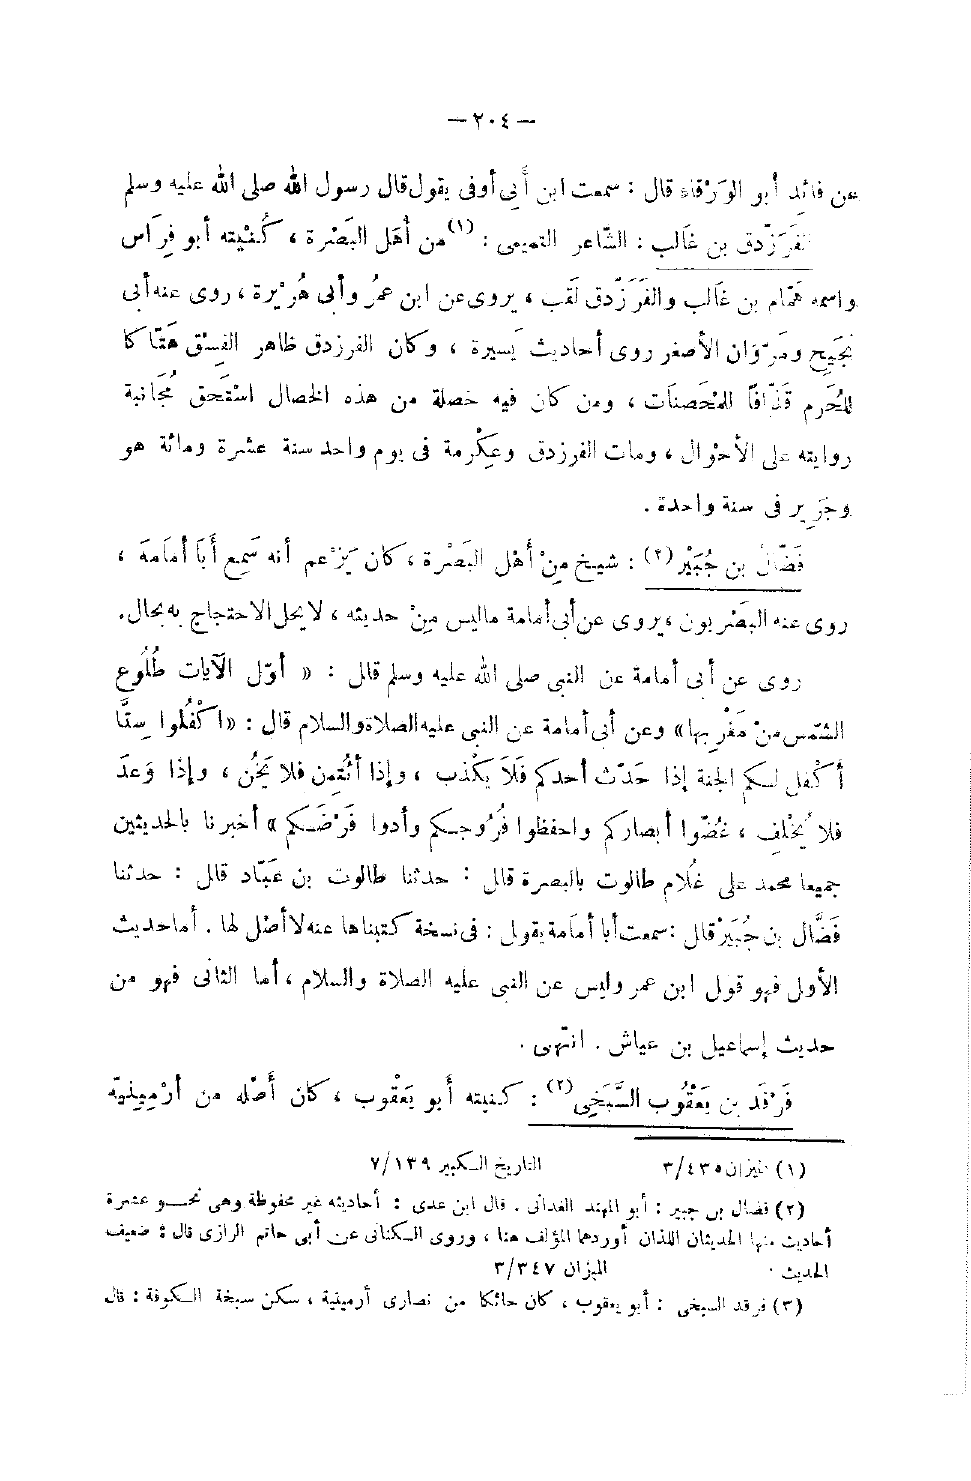 — ٢٠٤ —
عن فائد أبو الوَرْقاء قال : سمعت ابن أبى أوفى يقول قال رسول الله صلى الله عليه وسلم
الفَرَزْدق بن غَالب : الشّاعر التميمى : (١) من أهل البَصْرة ، كُنيته أبو فِرَاس
واسمه هَمّام بن غَالب والفَرَزْدق لقب ، يروى عن ابن عمُر وأبى هُريْرة ، روى عنه أبى
نَجَيح ومَرْوَان الأصغر روى أحاديث يَسيرة ، وكان الفرزدق ظاهر الفِسْق هَتّاكا
للحُرَم قَذّافًا للمُحْصَنات ، ومن كان فيه خصلة من هذه الخصال استَحق مُجَانبة
روايته على الأحْوال ، ومات الفرزدق وعِكْرمة فى يوم واحد سنة عشرة ومائة هو
وجَرِير فى سنة واحدة .
فَضّال بن جُبَيْر (٢) : شيخ مِنْ أهْل البَصْرة ، كان يَزْعم أنه سَمِع أبَا أمَامَة ،
روى عنه البَصْريون ، يروى عن أبى أمامة ماليس مِنْ حديثه ، لا يحل الاحتجاج به بحال .
روى عن أبى أمامة عن النبى صلى الله عليه وسلم قال : « أوّل الآيات طُلُوع
الشّمْس منْ مَغْرِبها » وعن أبى أمامة عن النبى عليه الصلاة والسلام قال : « اكْفُلوا سِتًّا
أكْفل لكم الجنة إذا حَدّث أحدكم فَلَا يَكْذب ، وإذا أئْتُمِن فلا يَخُن ، وإذا وَعدَ
فلا يُخْلِف ، غُضّوا أبصاركم واحفظوا فُرُوجكم وأدوا فَرْضَكم » أخبرنا بالحديثين
جميعا محمد على غُلام طالوت بالبصرة قال : حدثنا طالوت بن عَبّاد قال : حدثنا
فَضَّال بن جُبَيْر قال : سمعت أبا أمامة يقول : فى نسخة كتبناها عنه لا أصْل لها . أما حديث
الأول فهو قول ابن عمر وليس عن النبى عليه الصلاة والسلام ، أما الثانى فهو من
حديث إسماعيل بن عياش . انتهى .
فَرْقَد بن يَعْقُوب السَّبَخِى (٢) : كنيته أبو يَعْقوب ، كان أصْله من أرْمِينيّة
(١) الميزان ٣/٤٣٥ التاريخ الكبير ٧/١٣٩
(٢) فضال بن جبير : أبو المهند الغدانى . قال ابن عدى : أحاديثه غير محفوظة وهى نحو عشرة
أحاديث منها الحديثان اللذان أوردهما المؤلف هنا ، وروى الكنانى عن أبى حاتم الرازى قال : ضعيف
الحديث . الميزان ٣/٣٤٧
(٣) فرقد السبخى : أبو يعقوب ، كان حائكا من نصارى أرمينية ، سكن سبخة الكوفة : قال